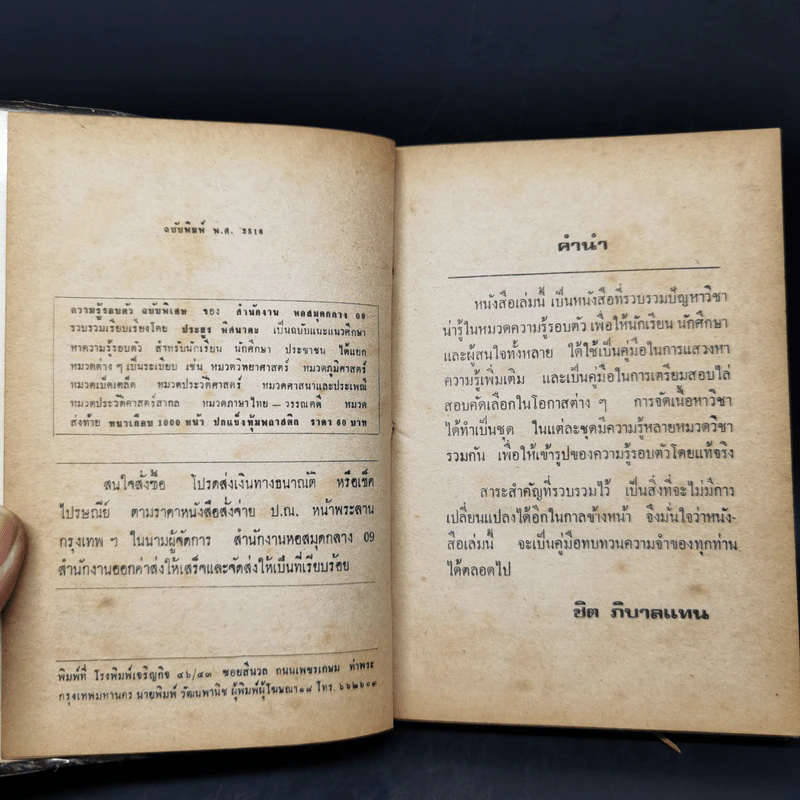 ฉบับพิมพ์ พ.ศ. 2518
ความรู้รอบตัว ฉบับพิเศษ ของ สำนักงาน หอสมุดกลาง 09
รวบรวมเรียบเรียงโดย ประธูร พิศนาคะ เป็นฉบับแนะแนวศึกษา
หาความรู้รอบตัว สำหรับนักเรียน นักศึกษา ประชาชน ได้แยก
หมวดต่าง ๆ เป็นระเบียบ เช่น หมวดวิทยาศาสตร์ หมวดภูมิศาสตร์
หมวดเบ็ดเตล็ด หมวดประวัติศาสตร์ หมวดศาสนาและประเพณี
หมวดประวัติศาสตร์สากล หมวดภาษาไทย – วรรณคดี หมวด
ส่งท้าย หนาเกือบ 1000 หน้า ปกแข็งหุ้มพลาสติก ราคา 60 บาท
สนใจสั่งซื้อ โปรดส่งเงินทางธนาณัติ หรือเช็ค
ไปรษณีย์ ตามราคาหนังสือสั่งจ่าย ป.ณ. หน้าพระลาน
กรุงเทพ ฯ ในนามผู้จัดการ สำนักงานหอสมุดกลาง 09
สำนักงานออกค่าส่งให้เสร็จและจัดส่งให้เป็นที่เรียบร้อย
พิมพ์ที่ โรงพิมพ์เจริญกิจ ๔๖/๔๓ ซอยสีนวล ถนนเพชรเกษม ท่าพระ
กรุงเทพมหานคร นายพิมพ์ วัฒนพานิช ผู้พิมพ์ผู้โฆษณา๑๘ โทร. ๖๖๒๖๐๓
คำนำ
หนังสือเล่มนี้ เป็นหนังสือที่รวบรวมปัญหาวิชา
น่ารู้ในหมวดความรู้รอบตัว เพื่อให้นักเรียน นักศึกษา
และผู้สนใจทั้งหลาย ได้ใช้เป็นคู่มือในการแสวงหา
ความรู้เพิ่มเติม และเป็นคู่มือในการเตรียมสอบไล่
สอบคัดเลือกในโอกาสต่าง ๆ การจัดเนื้อหาวิชา
ได้ทำเป็นชุด ในแต่ละชุดมีความรู้หลายหมวดวิชา
รวมกัน เพื่อให้เข้ารูปของความรู้รอบตัวโดยแท้จริง
สาระสำคัญที่รวบรวมไว้ เป็นสิ่งที่จะไม่มีการ
เปลี่ยนแปลงได้อีกในกาลข้างหน้า จึงมั่นใจว่าหนัง-
สือเล่มนี้ จะเป็นคู่มือทบทวนความจำของทุกท่าน
ได้ตลอดไป
ชิต ภิบาลแทน